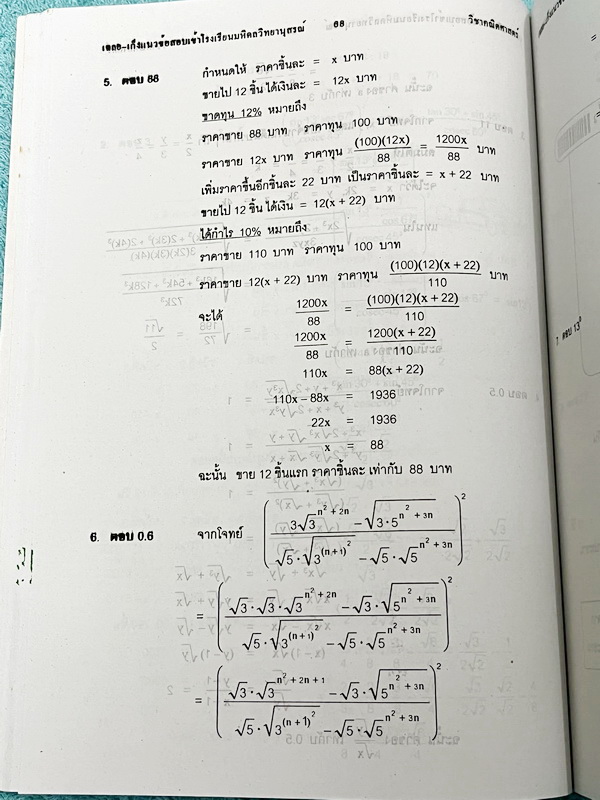 เฉลย-เก็งแนวข้อสอบเข้าโรงเรียนมหิดลวิทยานุสรณ์ 68 วิชาคณิตศาสตร์
5. ตอบ 88 กำหนดให้ ราคาชิ้นละ = x บาท
ขายไป 12 ชิ้น ได้เงินละ = 12x บาท
ขาดทุน 12% หมายถึง
ราคาขาย 88 บาท ราคาทุน 100 บาท
ราคาขาย 12x บาท ราคาทุน (100)(12x)/88 = 1200x/88 บาท
เพิ่มราคาขึ้นอีกชิ้นละ 22 บาท เป็นราคาชิ้นละ = x + 22 บาท
ขายไป 12 ชิ้น ได้เงิน = 12(x + 22) บาท
ได้กำไร 10% หมายถึง
ราคาขาย 110 บาท ราคาทุน 100 บาท
ราคาขาย 12(x + 22) บาท ราคาทุน (100)(12)(x + 22)/110 บาท
จะได้ 1200x/88 = (100)(12)(x + 22)/110
1200x/88 = 1200(x + 22)/110
110x = 88(x + 22)
110x – 88x = 1936
22x = 1936
x = 88
ฉะนั้น ขาย 12 ชิ้นแรก ราคาชิ้นละ เท่ากับ 88 บาท
6. ตอบ 0.6 จากโจทย์ ((3√3^(n²+2n) – √(3·5^(n²+3n)))/(√5·√(3^((n+1)²)) – √5·√5^(n²+3n)))²
= ((√3·√3·√3^(n²+2n) – √3·√(5^(n²+3n)))/(√5·√(3^((n+1)²)) – √5·√5^(n²+3n)))²
= ((√3·√3^(n²+2n+1) – √3·√(5^(n²+3n)))/(√5·√(3^((n+1)²)) – √5·√5^(n²+3n)))²
7 ตอบ 13